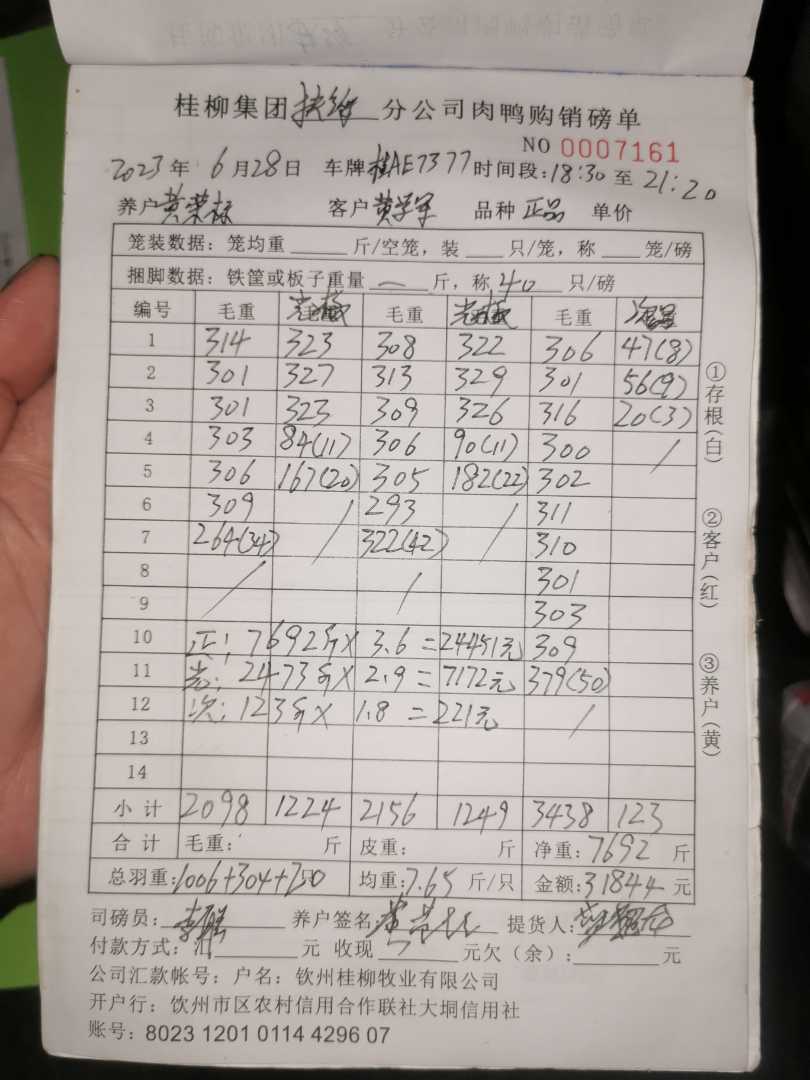 桂柳集团 分公司肉鸭购销磅单
NO 0007161
2023年 6月28日 车牌桂AE7377 时间段:18:30至 21:20
养户黄荣标 客户黄学军 品种 正品 单价
笼装数据: 笼均重 斤/空笼, 装 只/笼, 称 笼/磅
捆脚数据: 铁筐或板子重量 一 斤, 称 40 只/磅
编号 毛重 毛重 毛重
1 314 323 308 322 306 47(8)
2 301 327 313 329 301 56(9)
3 301 323 309 326 316 20(3)
4 303 84(11) 306 90(11) 300 /
5 306 167(20) 305 182(22) 302
6 309 / 293 / 311
7 264(34) / 322(42) / 310
8 / / 301
9 303
10 正: 7692斤X 3.6 =24451元 309
11 光: 2473斤X 2.9 = 7172元 379(50)
12 次: 123斤X 1.8 = 221元 /
13
14
小计 2098 1224 2156 1249 3438 123
合计 毛重: 斤 皮重: 斤 净重: 7692 斤
总羽重: 1006+304+20只 均重: 7.65 斤/只 金额: 31844 元
司磅员: 养户签名 提货人:
付款方式: 汇 元 收现 元欠(余): 元
公司汇款帐号: 户名: 钦州桂柳牧业有限公司
开户行: 饮州市区农村信用合作联社大垌信用社
账号: 8023 1201 0114 4296 07
①存根(白)
②客户(红)
③养户(黄)